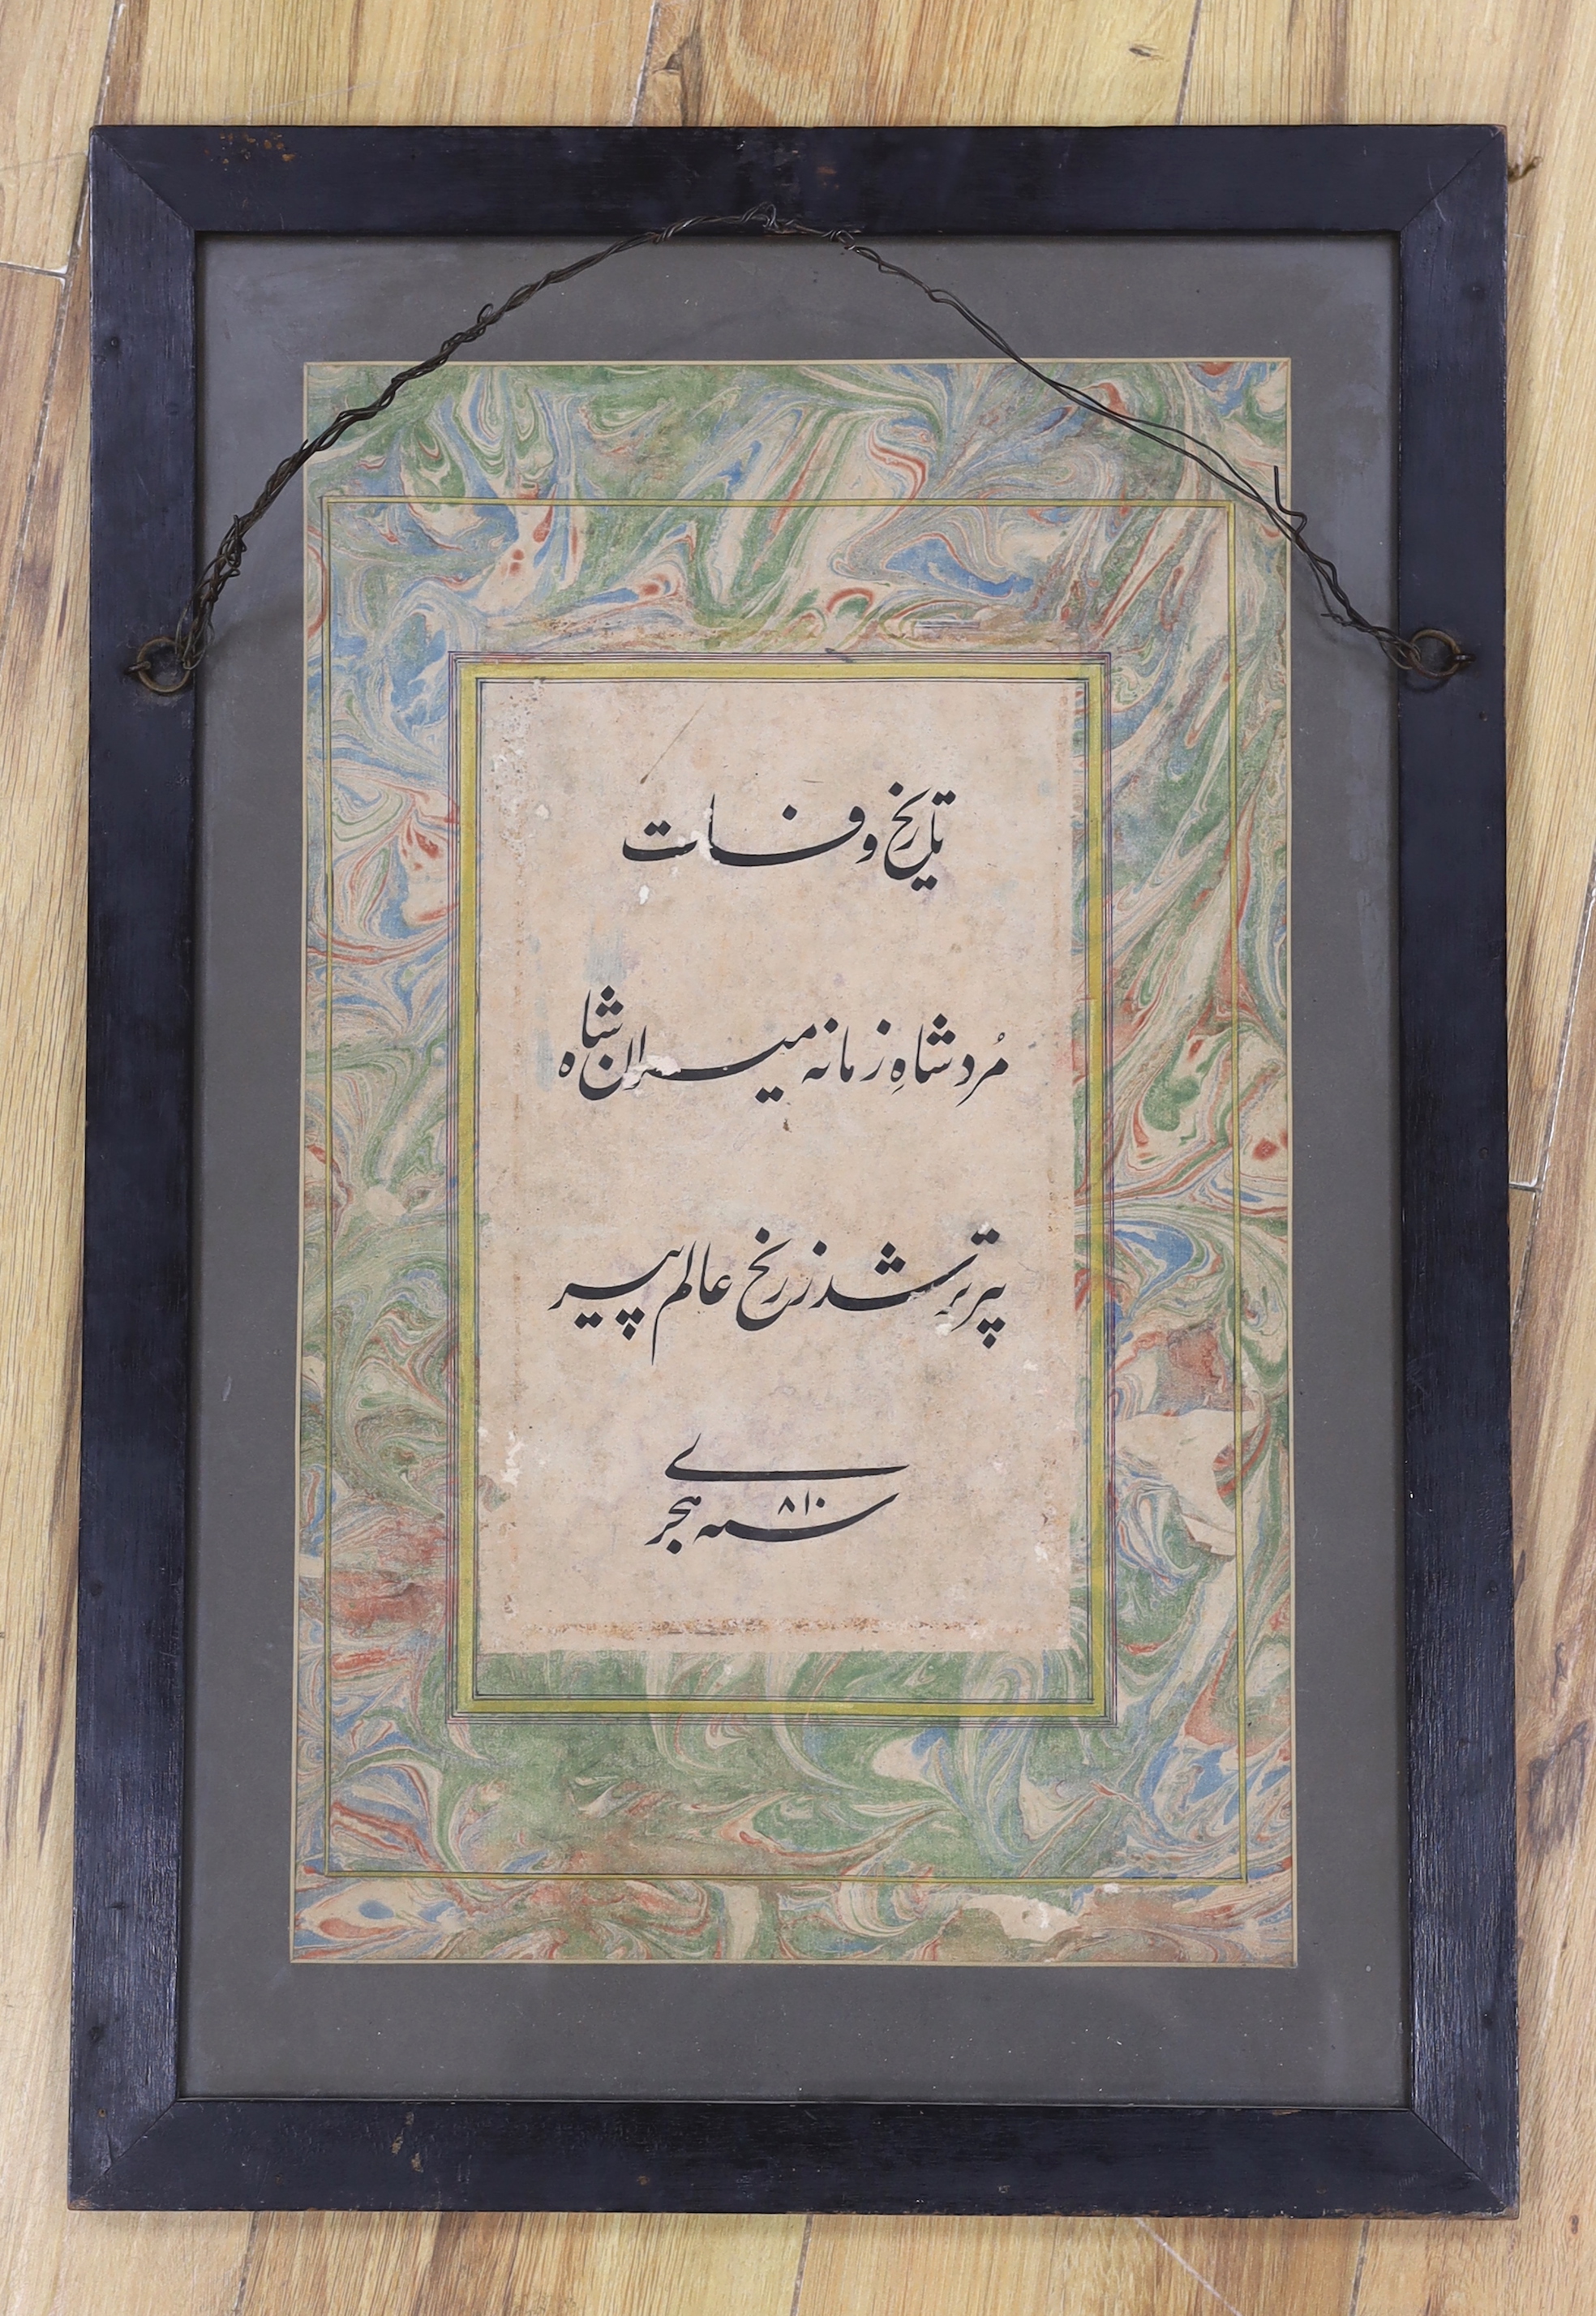 تاریخ وفات
مُرد شاهِ زمانه میران شاه
پیرتر شد ز رنج عالم پیر
سنه ۸۱۰ هجری